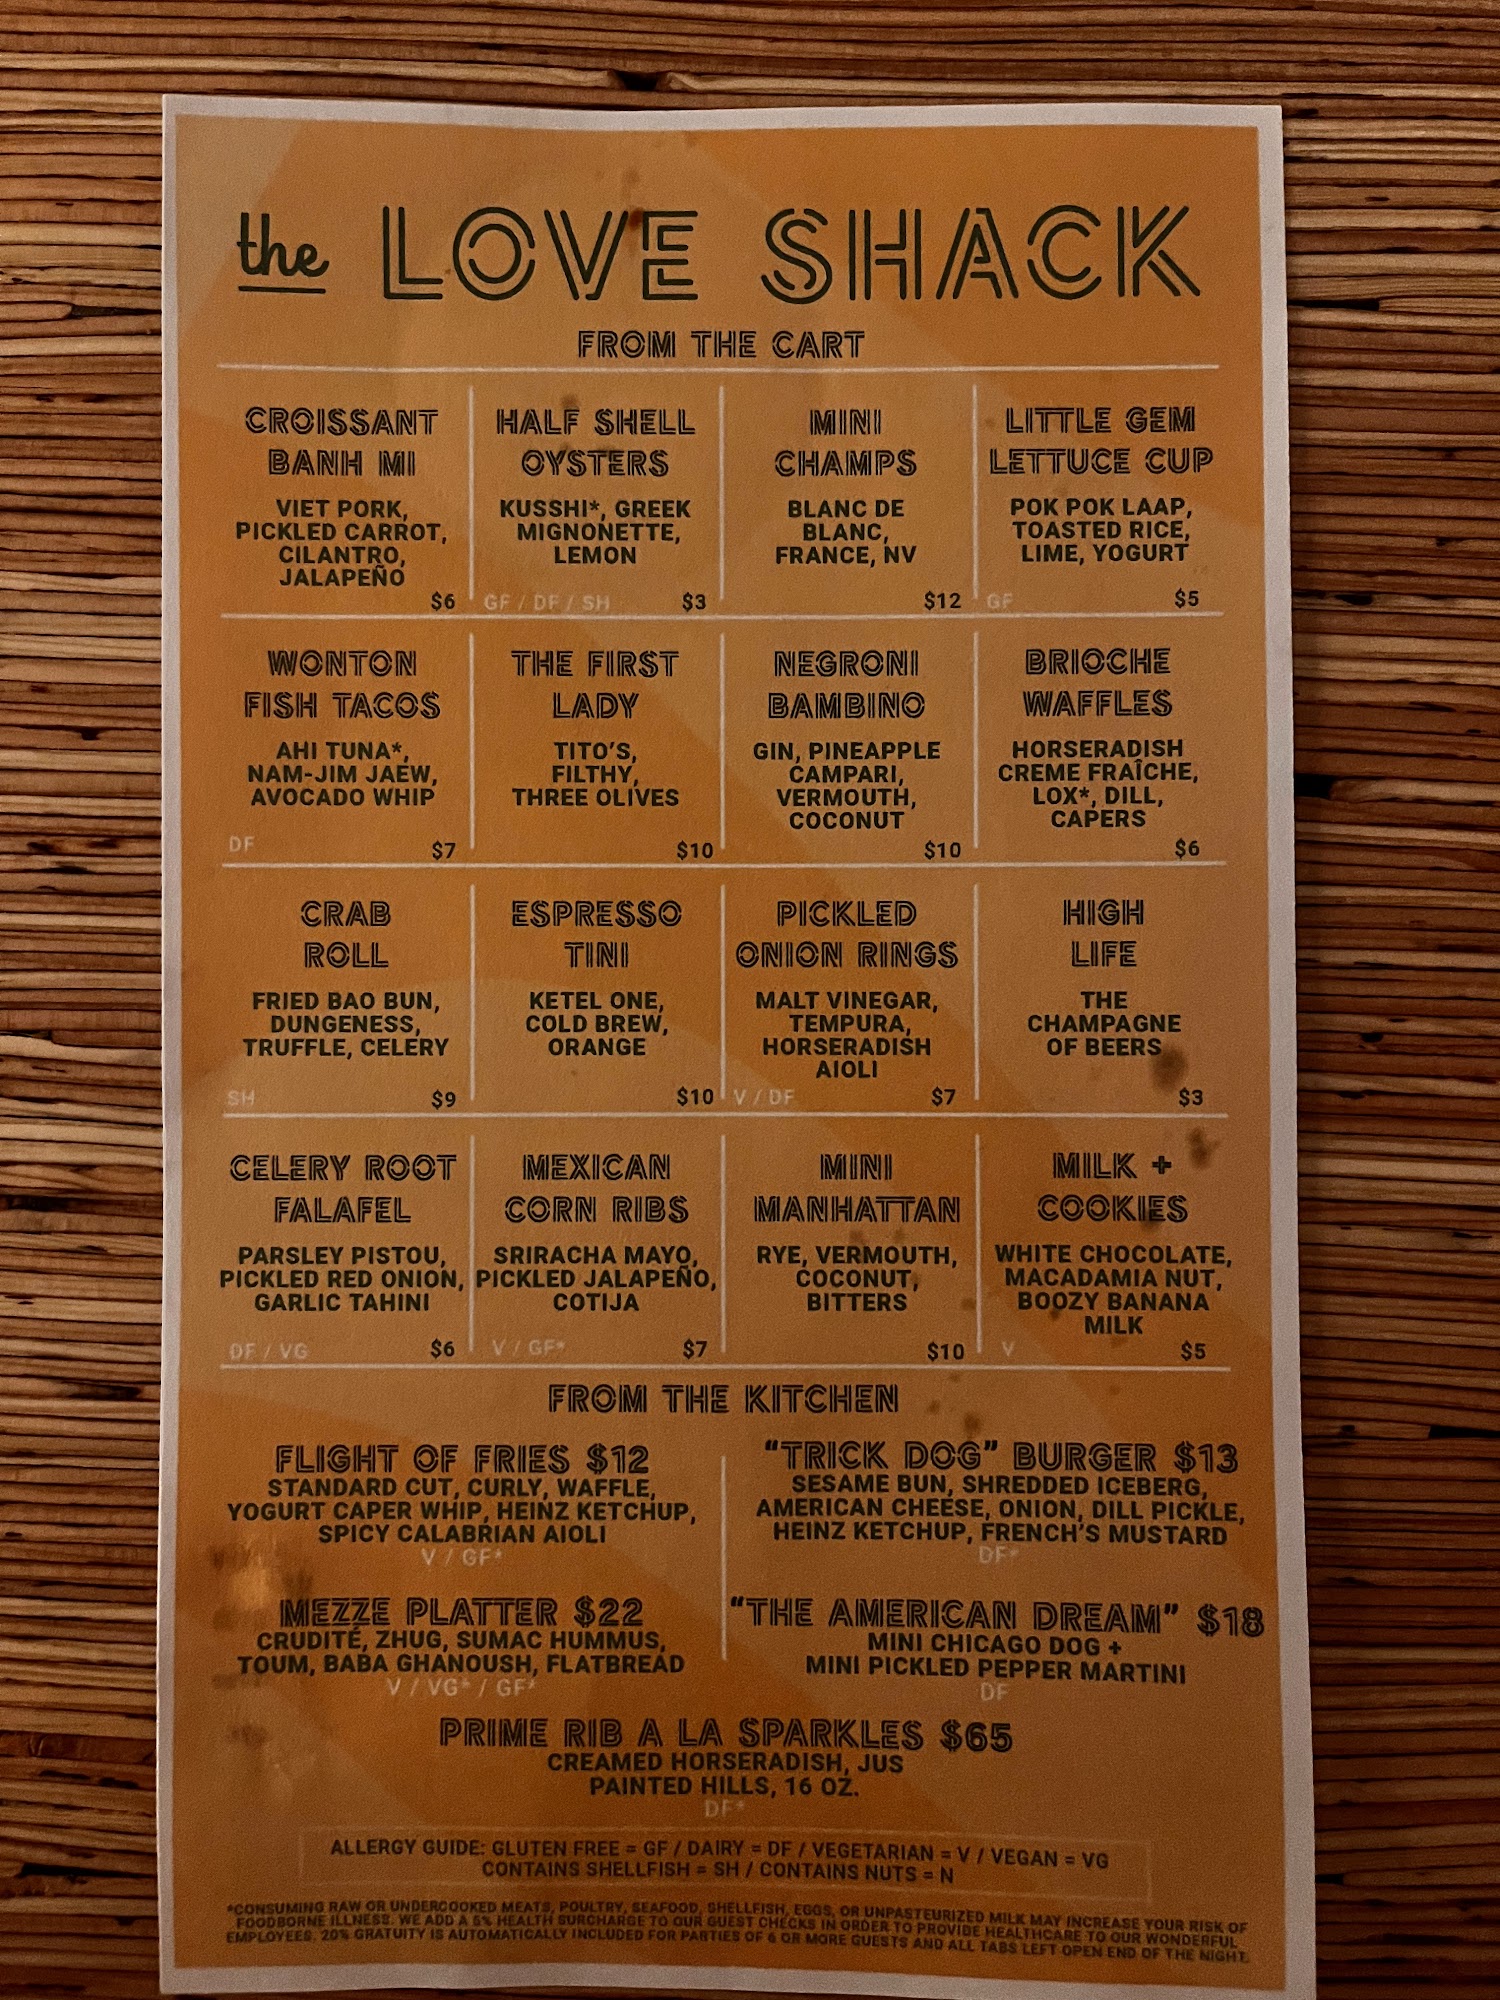 the LOVE SHACK
FROM THE CART
CROISSANT
BANH MI
VIET PORK,
PICKLED CARROT,
CILANTRO,
JALAPEÑO
$6
HALF SHELL
OYSTERS
KUSSHI*, GREEK
MIGNONETTE,
LEMON
GF / DF / SH $3
MINI
CHAMPS
BLANC DE
BLANC,
FRANCE, NV
$12
LITTLE GEM
LETTUCE CUP
POK POK LAAP,
TOASTED RICE,
LIME, YOGURT
GF $5
WONTON
FISH TACOS
AHI TUNA*,
NAM-JIM JAEW,
AVOCADO WHIP
DF $7
THE FIRST
LADY
TITO'S,
FILTHY,
THREE OLIVES
$10
NEGRONI
BAMBINO
GIN, PINEAPPLE
CAMPARI,
VERMOUTH,
COCONUT
$10
BRIOCHE
WAFFLES
HORSERADISH
CREME FRAÎCHE,
LOX*, DILL,
CAPERS
$6
CRAB
ROLL
FRIED BAO BUN,
DUNGENESS,
TRUFFLE, CELERY
SH $9
ESPRESSO
TINI
KETEL ONE,
COLD BREW,
ORANGE
$10
PICKLED
ONION RINGS
MALT VINEGAR,
TEMPURA,
HORSERADISH
AIOLI
V / DF $7
HIGH
LIFE
THE
CHAMPAGNE
OF BEERS
$3
CELERY ROOT
FALAFEL
PARSLEY PISTOU,
PICKLED RED ONION,
GARLIC TAHINI
DF / VG $6
MEXICAN
CORN RIBS
SRIRACHA MAYO,
PICKLED JALAPEÑO,
COTIJA
V / GF* $7
MINI
MANHATTAN
RYE, VERMOUTH,
COCONUT,
BITTERS
$10
MILK +
COOKIES
WHITE CHOCOLATE,
MACADAMIA NUT,
BOOZY BANANA
MILK
V $5
FROM THE KITCHEN
FLIGHT OF FRIES $12
STANDARD CUT, CURLY, WAFFLE,
YOGURT CAPER WHIP, HEINZ KETCHUP,
SPICY CALABRIAN AIOLI
V / GF*
"TRICK DOG" BURGER $13
SESAME BUN, SHREDDED ICEBERG,
AMERICAN CHEESE, ONION, DILL PICKLE,
HEINZ KETCHUP, FRENCH'S MUSTARD
DF*
MEZZE PLATTER $22
CRUDITÉ, ZHUG, SUMAC HUMMUS,
TOUM, BABA GHANOUSH, FLATBREAD
V / VG* / GF*
"THE AMERICAN DREAM" $18
MINI CHICAGO DOG +
MINI PICKLED PEPPER MARTINI
DF
PRIME RIB A LA SPARKLES $65
CREAMED HORSERADISH, JUS
PAINTED HILLS, 16 OZ.
DF*
ALLERGY GUIDE: GLUTEN FREE = GF / DAIRY = DF / VEGETARIAN = V / VEGAN = VG
CONTAINS SHELLFISH = SH / CONTAINS NUTS = N
*CONSUMING RAW OR UNDERCOOKED MEATS, POULTRY, SEAFOOD, SHELLFISH, EGGS, OR UNPASTEURIZED MILK MAY INCREASE YOUR RISK OF
FOODBORNE ILLNESS. WE ADD A 5% HEALTH SURCHARGE TO OUR GUEST CHECKS IN ORDER TO PROVIDE HEALTHCARE TO OUR WONDERFUL
EMPLOYEES. 20% GRATUITY IS AUTOMATICALLY INCLUDED FOR PARTIES OF 6 OR MORE GUESTS AND ALL TABS LEFT OPEN END OF THE NIGHT.